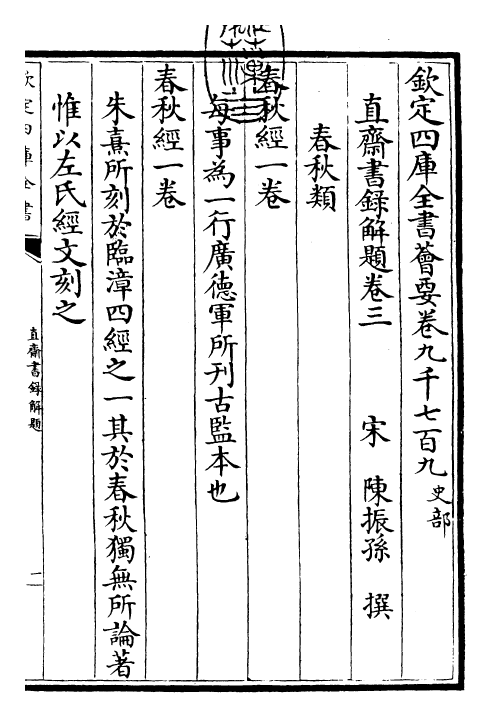 欽定四庫全書薈要卷九千七百九 史部
直齋書録解題卷三 宋 陳振孫 撰
春秋類
春秋經一卷
每事為一行廣德軍所刊古監本也
春秋經一卷
朱熹所刻於臨漳四經之一其於春秋獨無所論著
惟以左氏經文刻之
欽定四庫全書
直齋書録解題